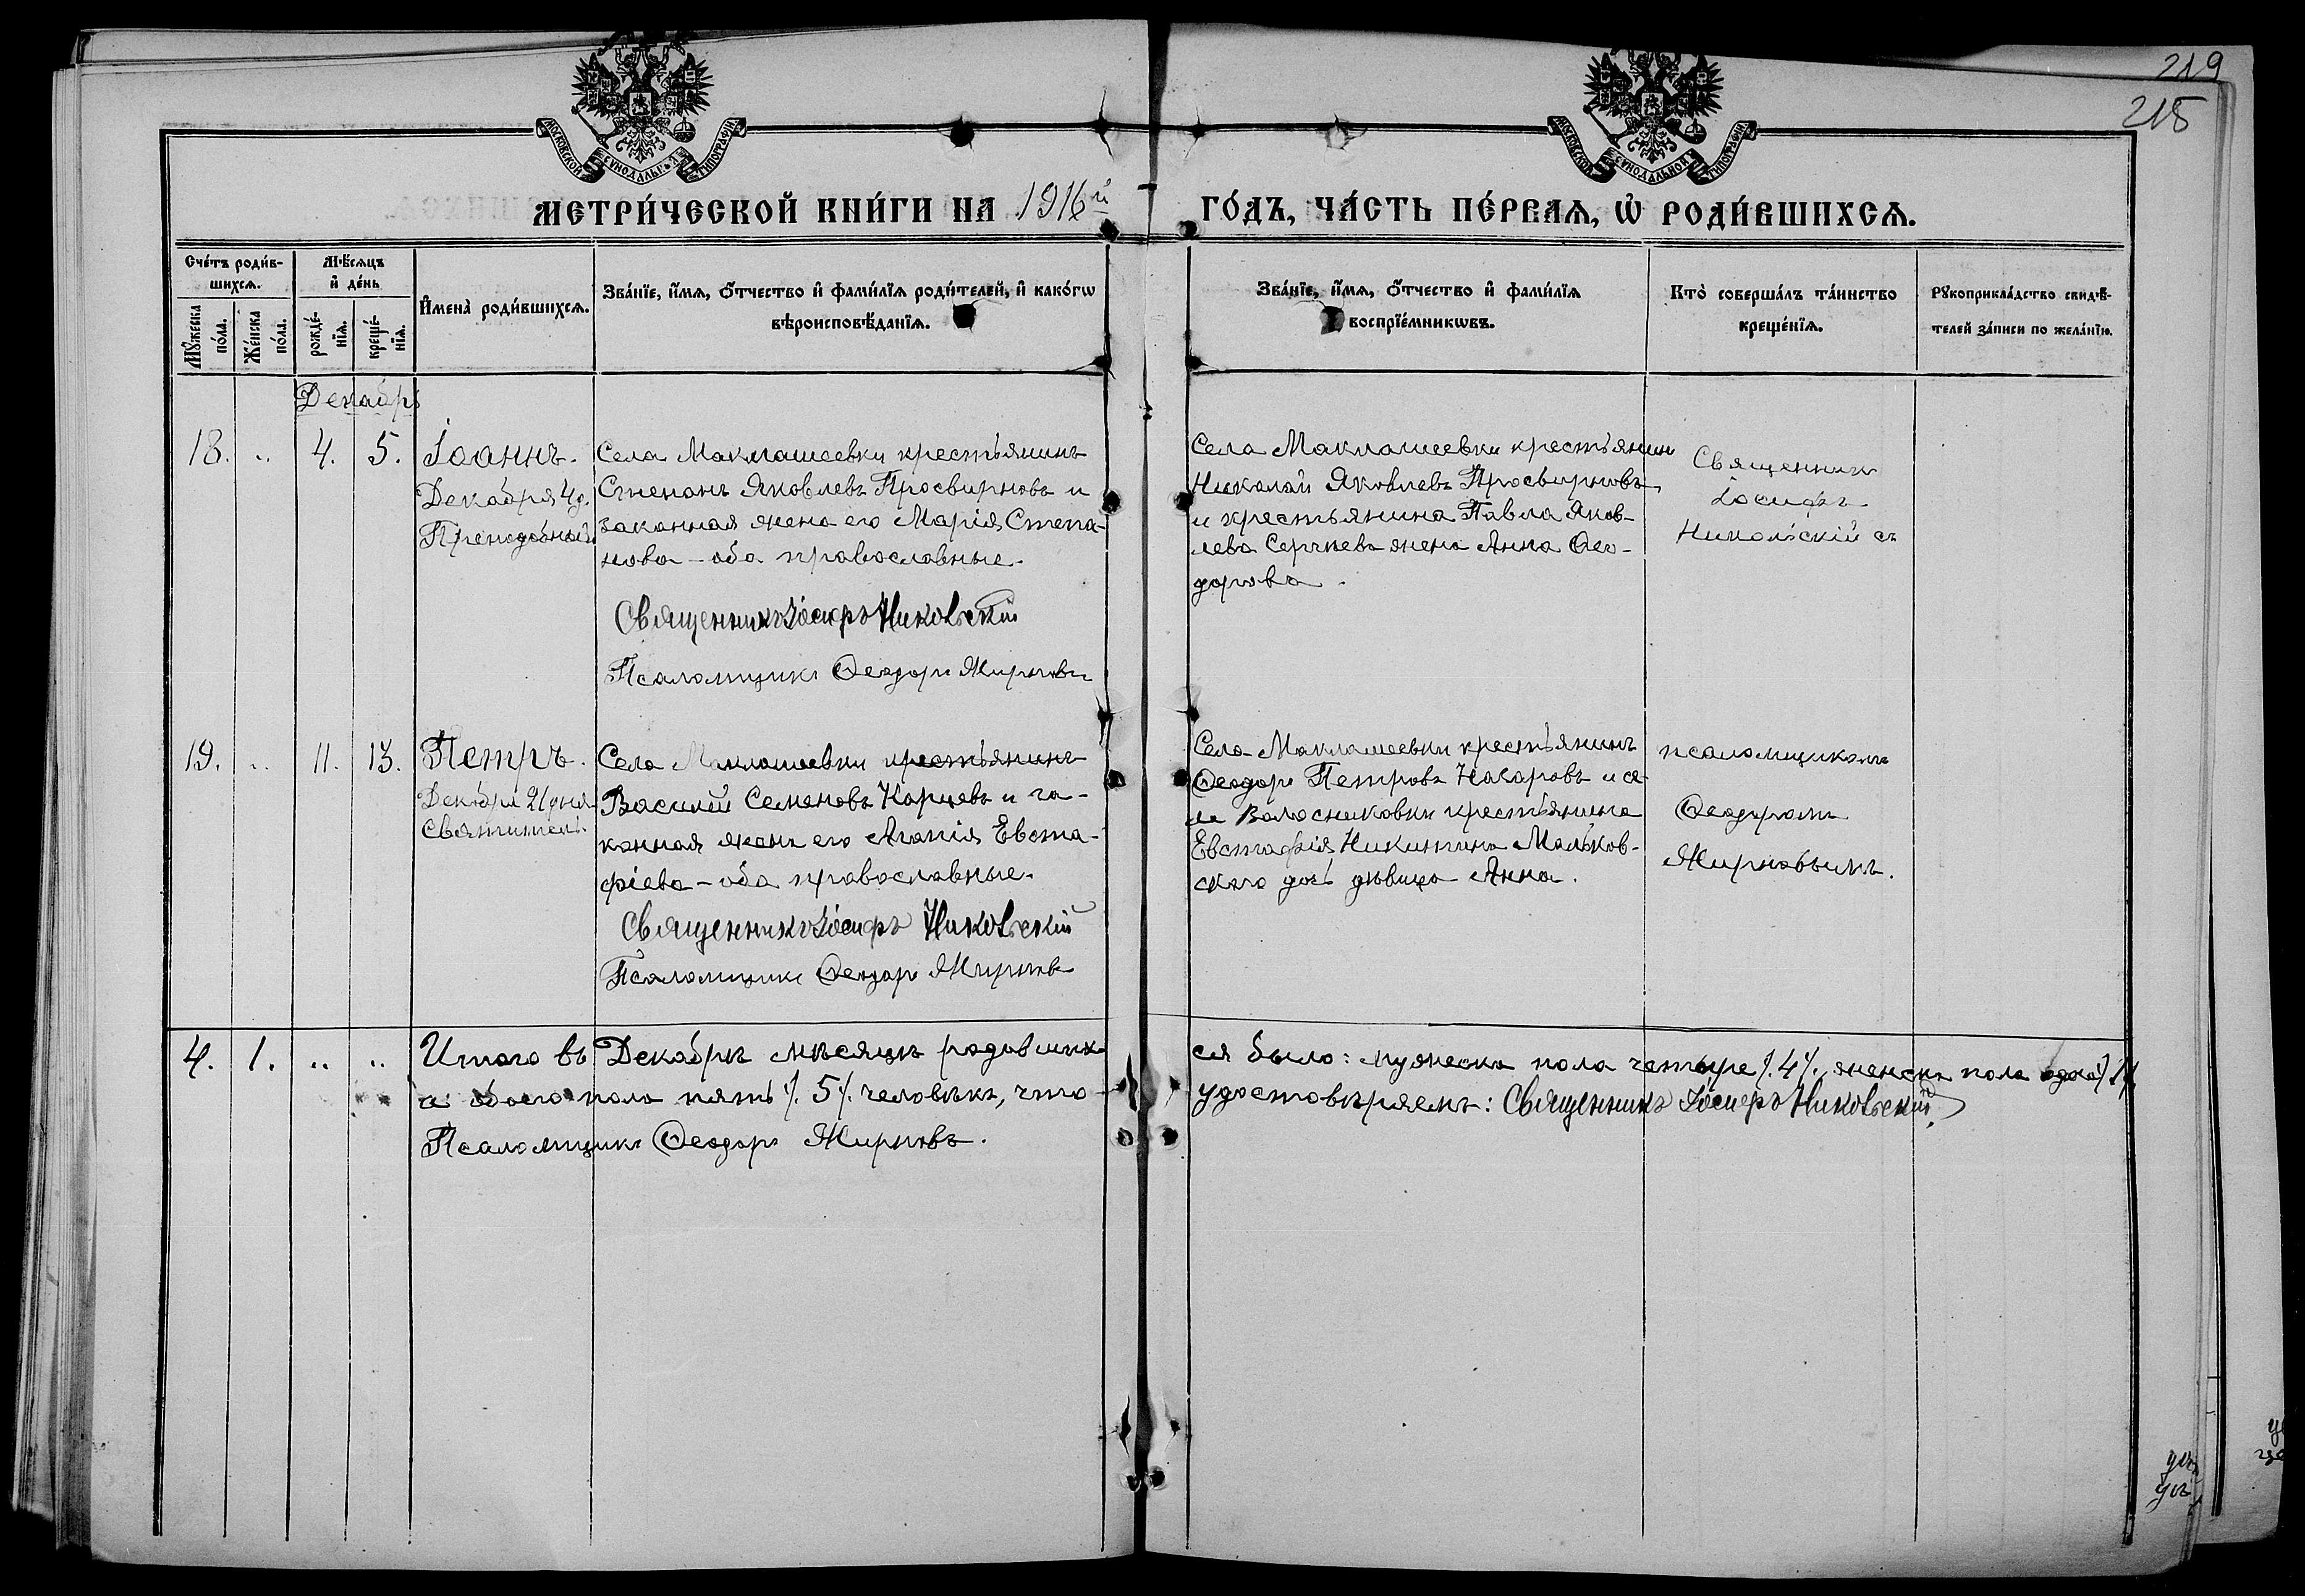 219
215
МОСКОВСКОЙ СѴНОДАЛЬНОЙ ТИПОГРАФІИ
МОСКОВСКОЙ СѴНОДАЛЬНОЙ ТИПОГРАФІИ
МЕТРИ́ЧЕСКОЙ КНИ́ГИ НА 1916й ГО́ДЪ, ЧА́СТЬ ПЕ́РВАѦ, Ѡ҆ РОДИ́ВШИХСѦ.
Сче́тъ роди́в-
шихсѧ.
Мѣ́сѧцъ
и҆ де́нь
Мꙋ́жеска по́ла.
Же́нска по́ла.
рожде́-
нїѧ.
креще́-
нїѧ.
И҆мена̀ роди́вшихсѧ.
Зва́нїе, и҆́мѧ, ѻ҆́тчество и҆ фами́лїѧ роди́телей, и҆ како́гѡ
вѣроисповѣ́данїѧ.
Зва́нїе, и҆́мѧ, ѻ҆́тчество и҆ фами́лїѧ
воспрїе́мникѡвъ.
Кто̀ соверша́лъ та́инство
креще́нїѧ.
Рꙋкоприкла́дство свидѣ́-
телей за́писи по жела́нїю.
Декабрь
18. „ 4. 5. Іоаннъ.
Декабря 4 д.
Преподобный
Села Маклашеевки крестьянинъ
Степанъ Яковлевъ Просвирновъ и
законная жена его Марія Степа-
нова – оба православные.
Священникъ Іосифъ Никольскій
Псаломщикъ Ѳеодоръ Жирновъ
Села Маклашеевки крестьянин
Николай Яковлевъ Просвирновъ
и крестьянина Павла Яков-
лева Сергѣева жена Анна Ѳео-
дорова.
Священникъ
Іосифъ
Никольскій съ
19. „ 11. 13. Петръ.
Декабря 21 дня
Святитель.
Села Маклашеевки крестьянинъ
Василій Семеновъ Карцевъ и за-
конная жена его Агапія Евста-
фіева – оба православные.
Священникъ Іосифъ Никольскій
Псаломщикъ Ѳеодоръ Жирновъ
Села Маклашеевки крестьянинъ
Ѳеодоръ Петровъ Макаровъ и се-
ла Волосниковки крестьянина
Евстафія Никитина Мальков-
скаго дочь дѣвица Анна.
псаломщикомъ
Ѳеодоромъ
Жирновымъ.
4. 1. „ „ Итого въ Декабрѣ мѣсяцѣ родивших-
ся было: мужеска пола четыре /. 4 /., женска пола одна /. 1 /.
а обоего пола пять /. 5 /. человѣкъ, что
удостовѣряемъ: Священникъ Іосифъ Никольскій
Псаломщикъ Ѳеодоръ Жирновъ.